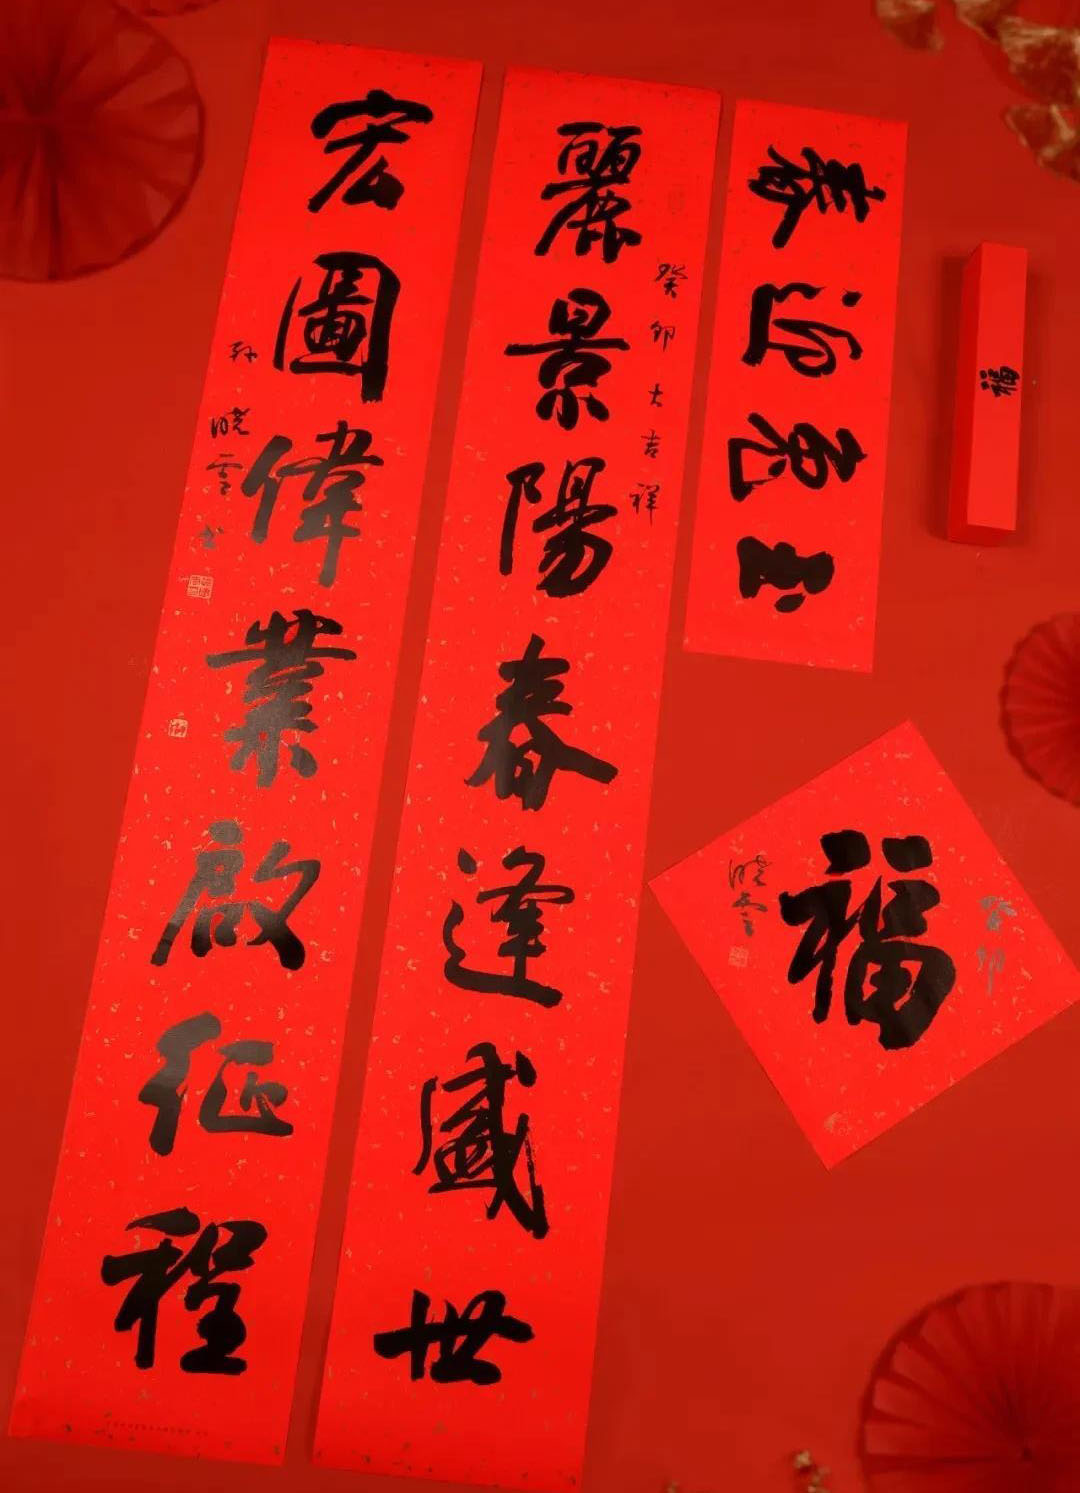 麗景陽春逢盛世
癸卯大吉祥
宏圖偉業啟征程
孙晓雲书
玉兔迎春
福
癸卯
福
晓雲